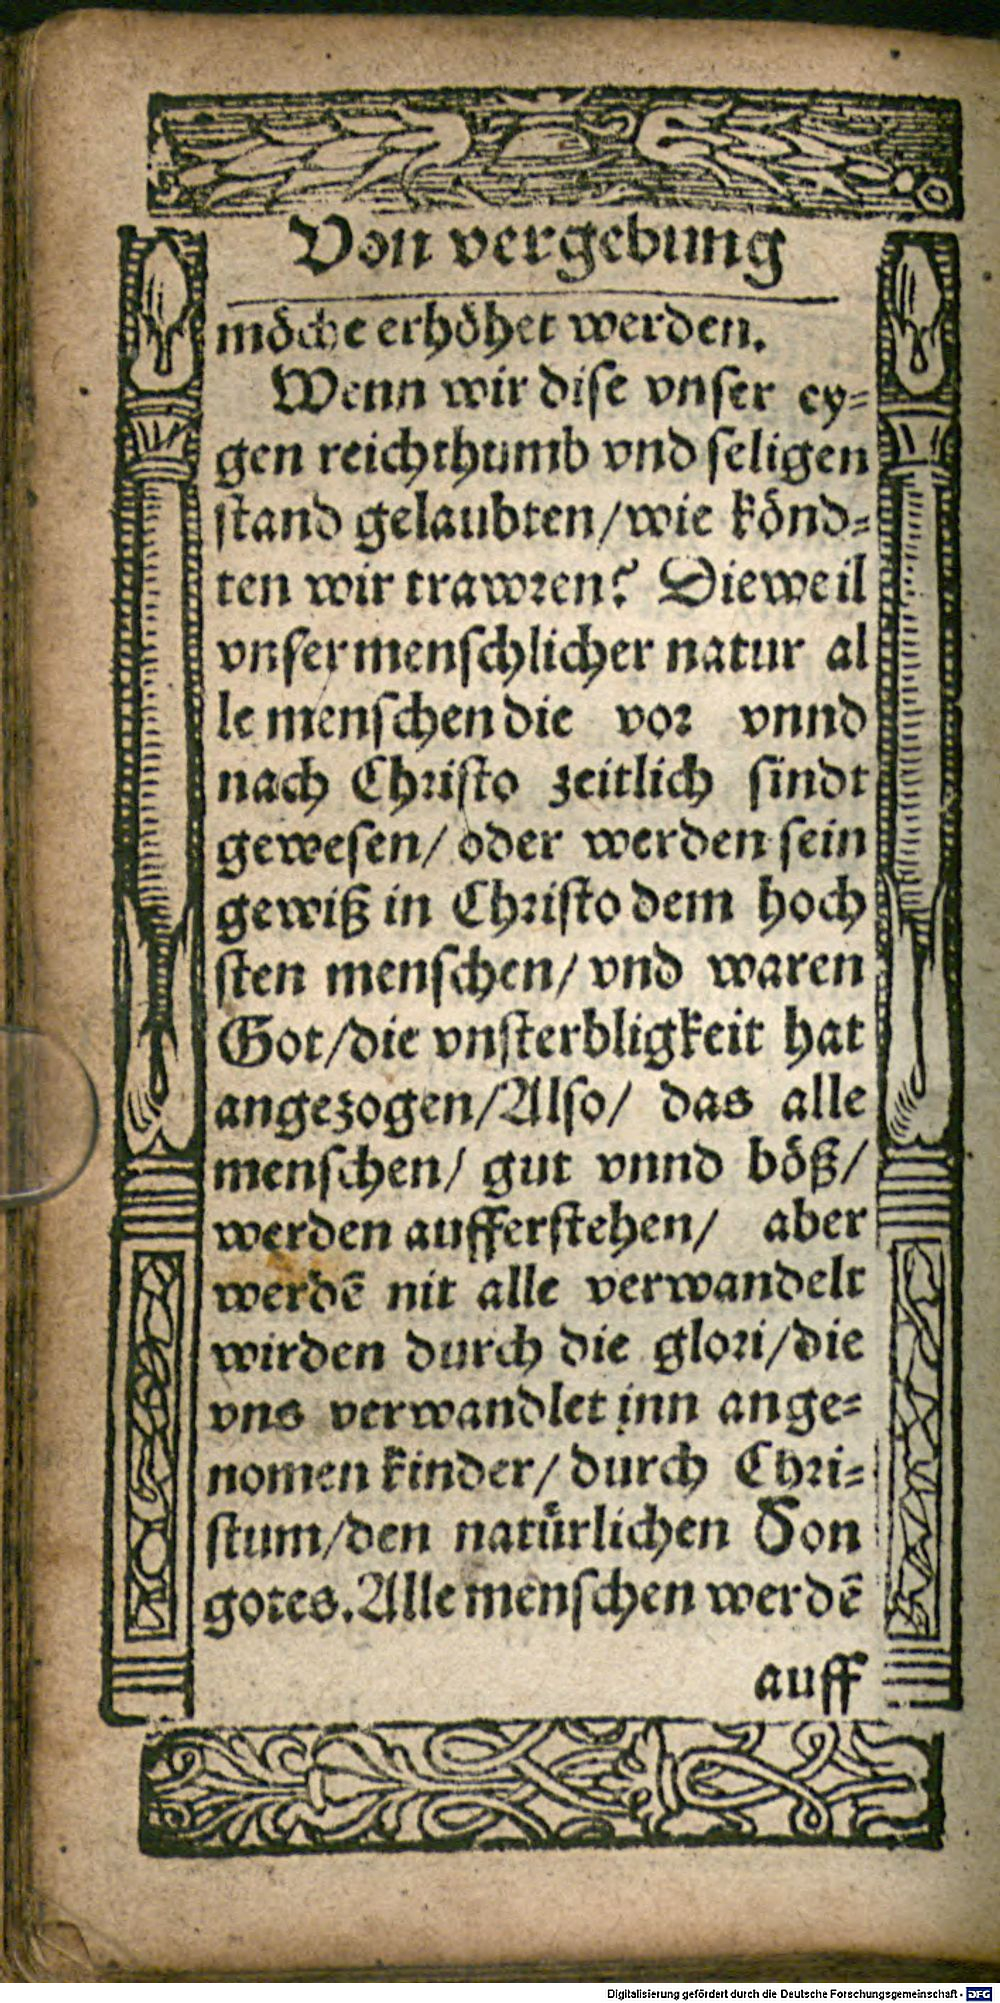 Von vergebung
möche erhöhet werden.
Wenn wir dise vnser ey⸗
gen reichthumb vnd seligen
stand gelaubten/wie könd⸗
ten wir trawren? Dieweil
vnser menschlicher natur al
le menschen die vor vnnd
nach Christo zeitlich sindt
gewesen/ oder werden sein
gewiß in Christo dem hoch
sten menschen/ vnd waren
Got/die vnsterbligkeit hat
angezogen/Also/ das alle
menschen/ gut vnnd böß/
werden aufferstehen/ aber
werdē nit alle verwandelt
wirden durch die glori/die
vns verwandlet inn ange⸗
nomen kinder/ durch Chri⸗
stum/den natürlichen Son
gotes. Alle menschen werdē
auff
Digitalisierung gefördert durch die Deutsche Forschungsgemeinschaft - DFG